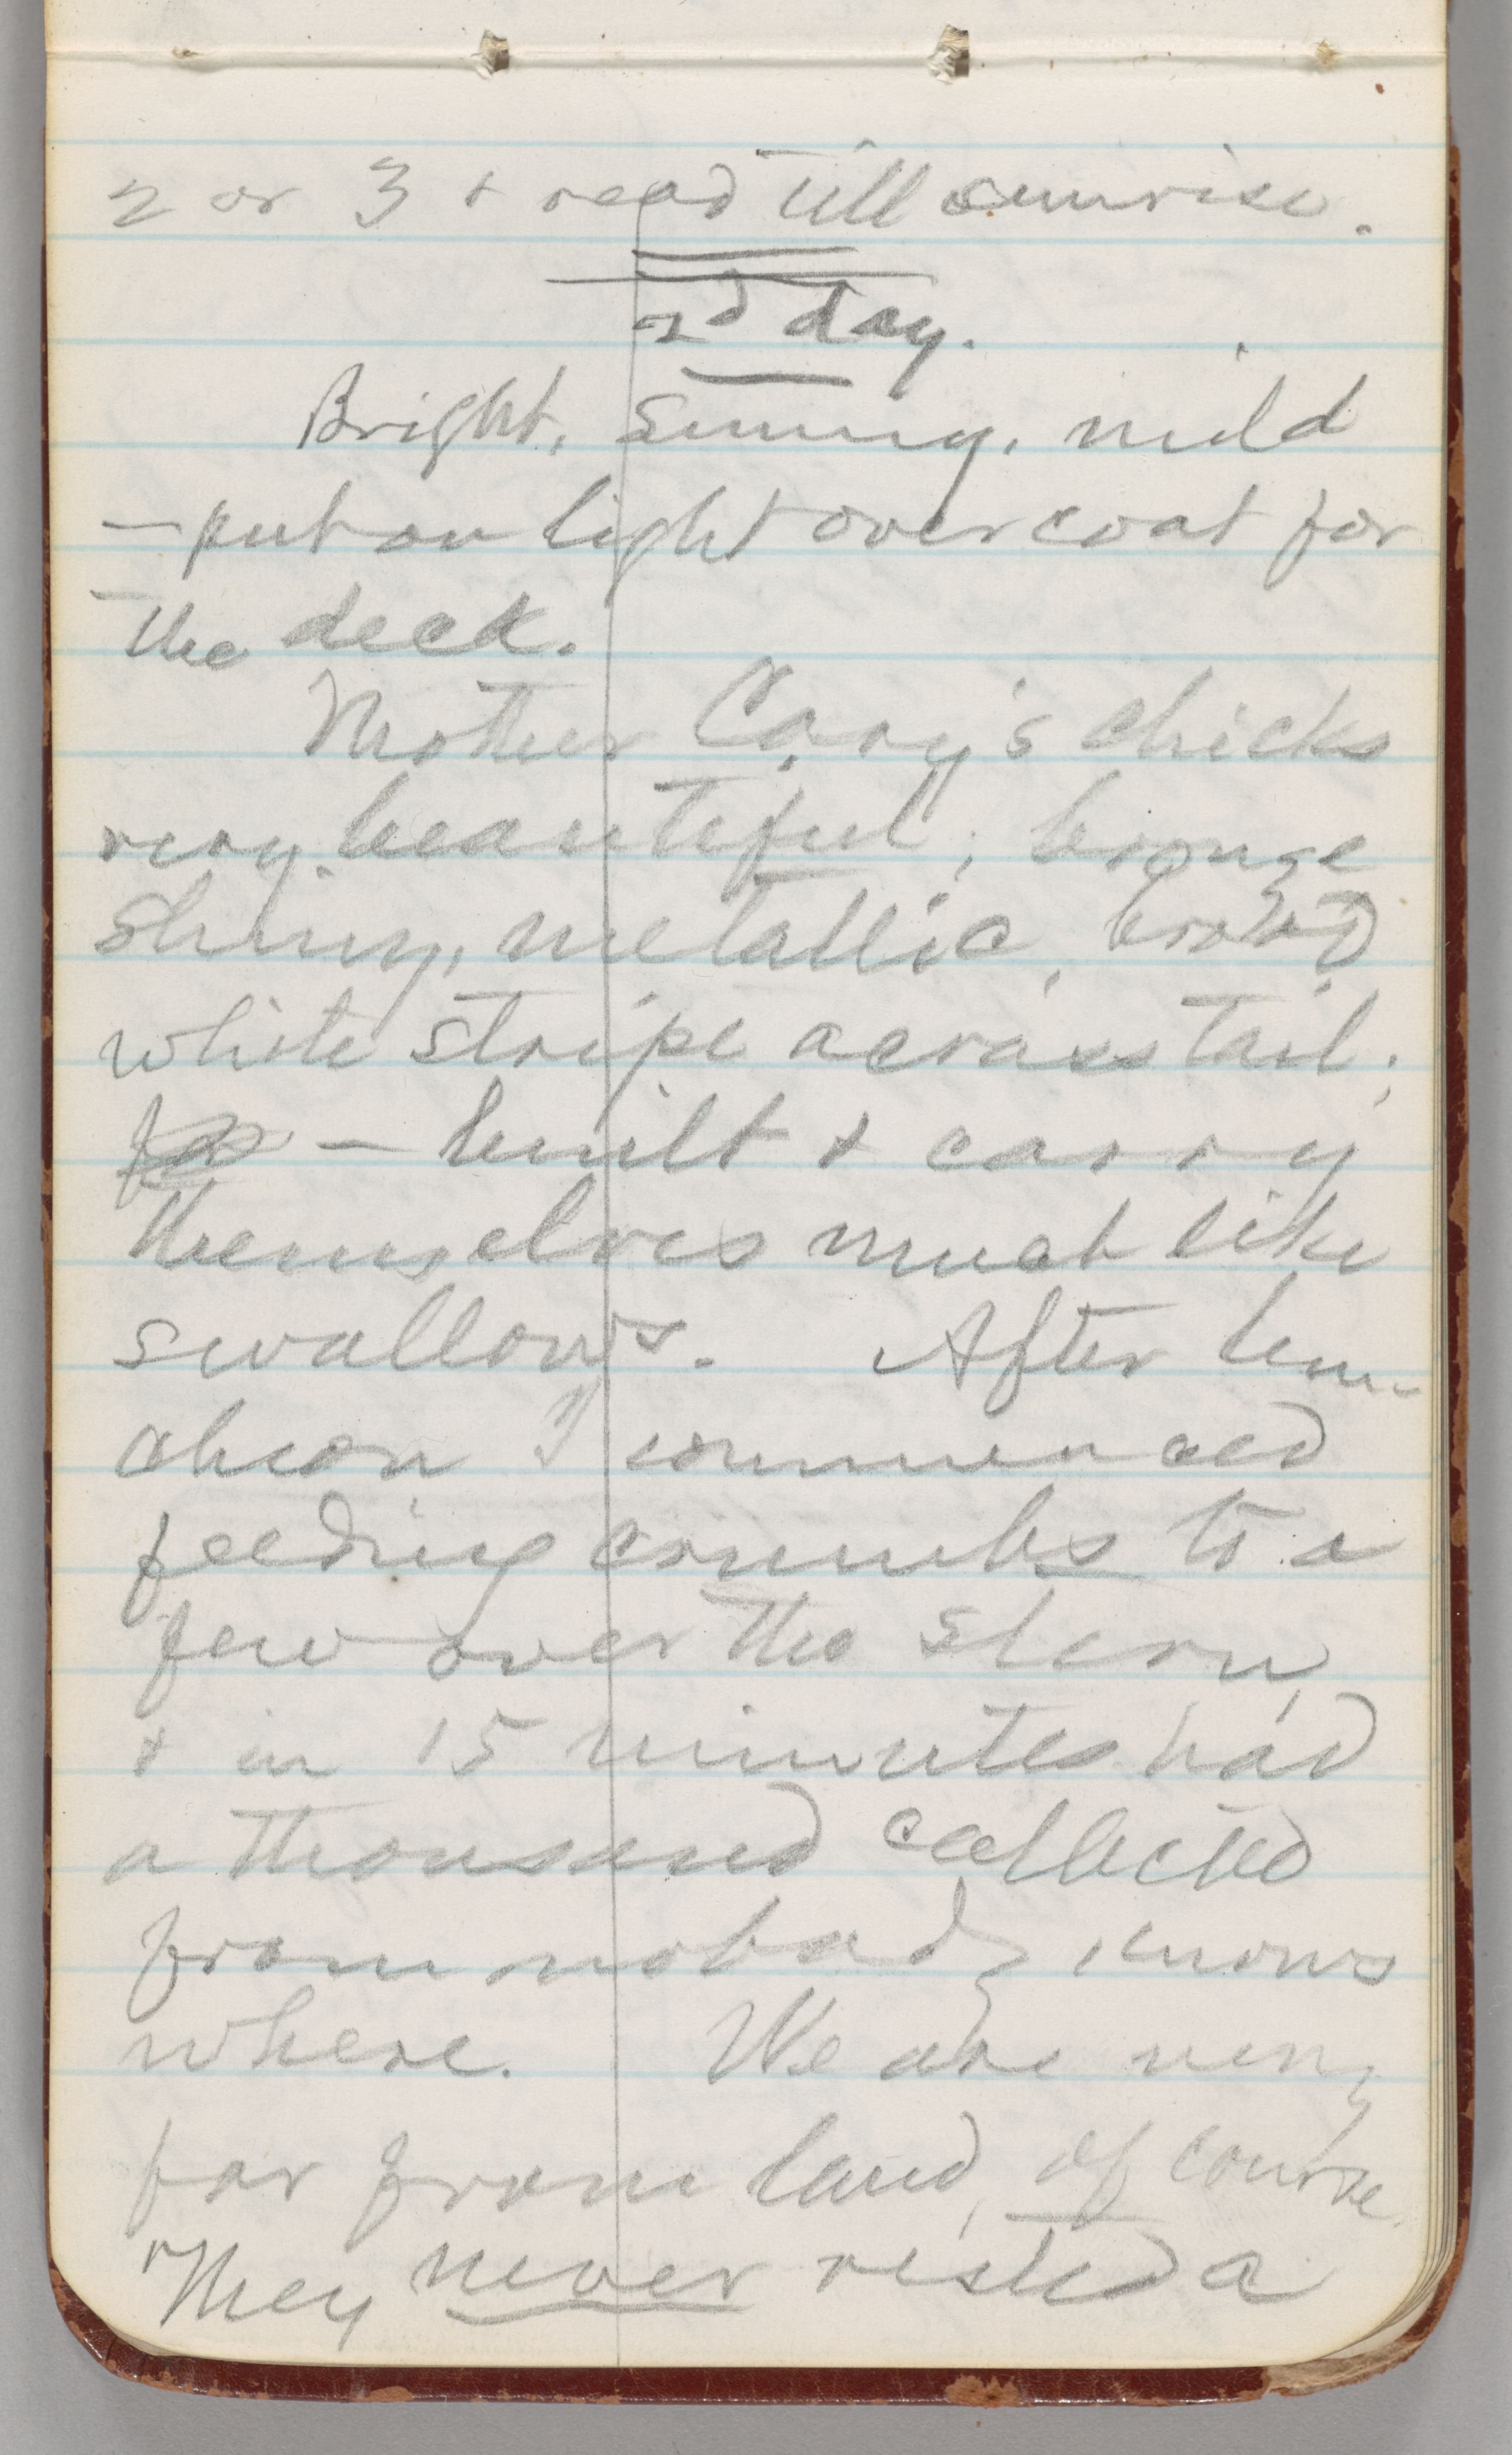 2 or 3 & read till sunrise.
2d day.
Bright, sunny, mild
— put on light overcoat for
the deck.
Mother Cary's chicks
very beautiful; bronze
shiny, metallic, broad
white stripe across tail;
— built & carry
themselves much like
swallows. After lun-
cheon I commenced
feeding crumbs to a
few over the stern,
& in 15 minutes had
a thousand collected
from nobody knows
where. We are very
far from land, of course.
They never rested a